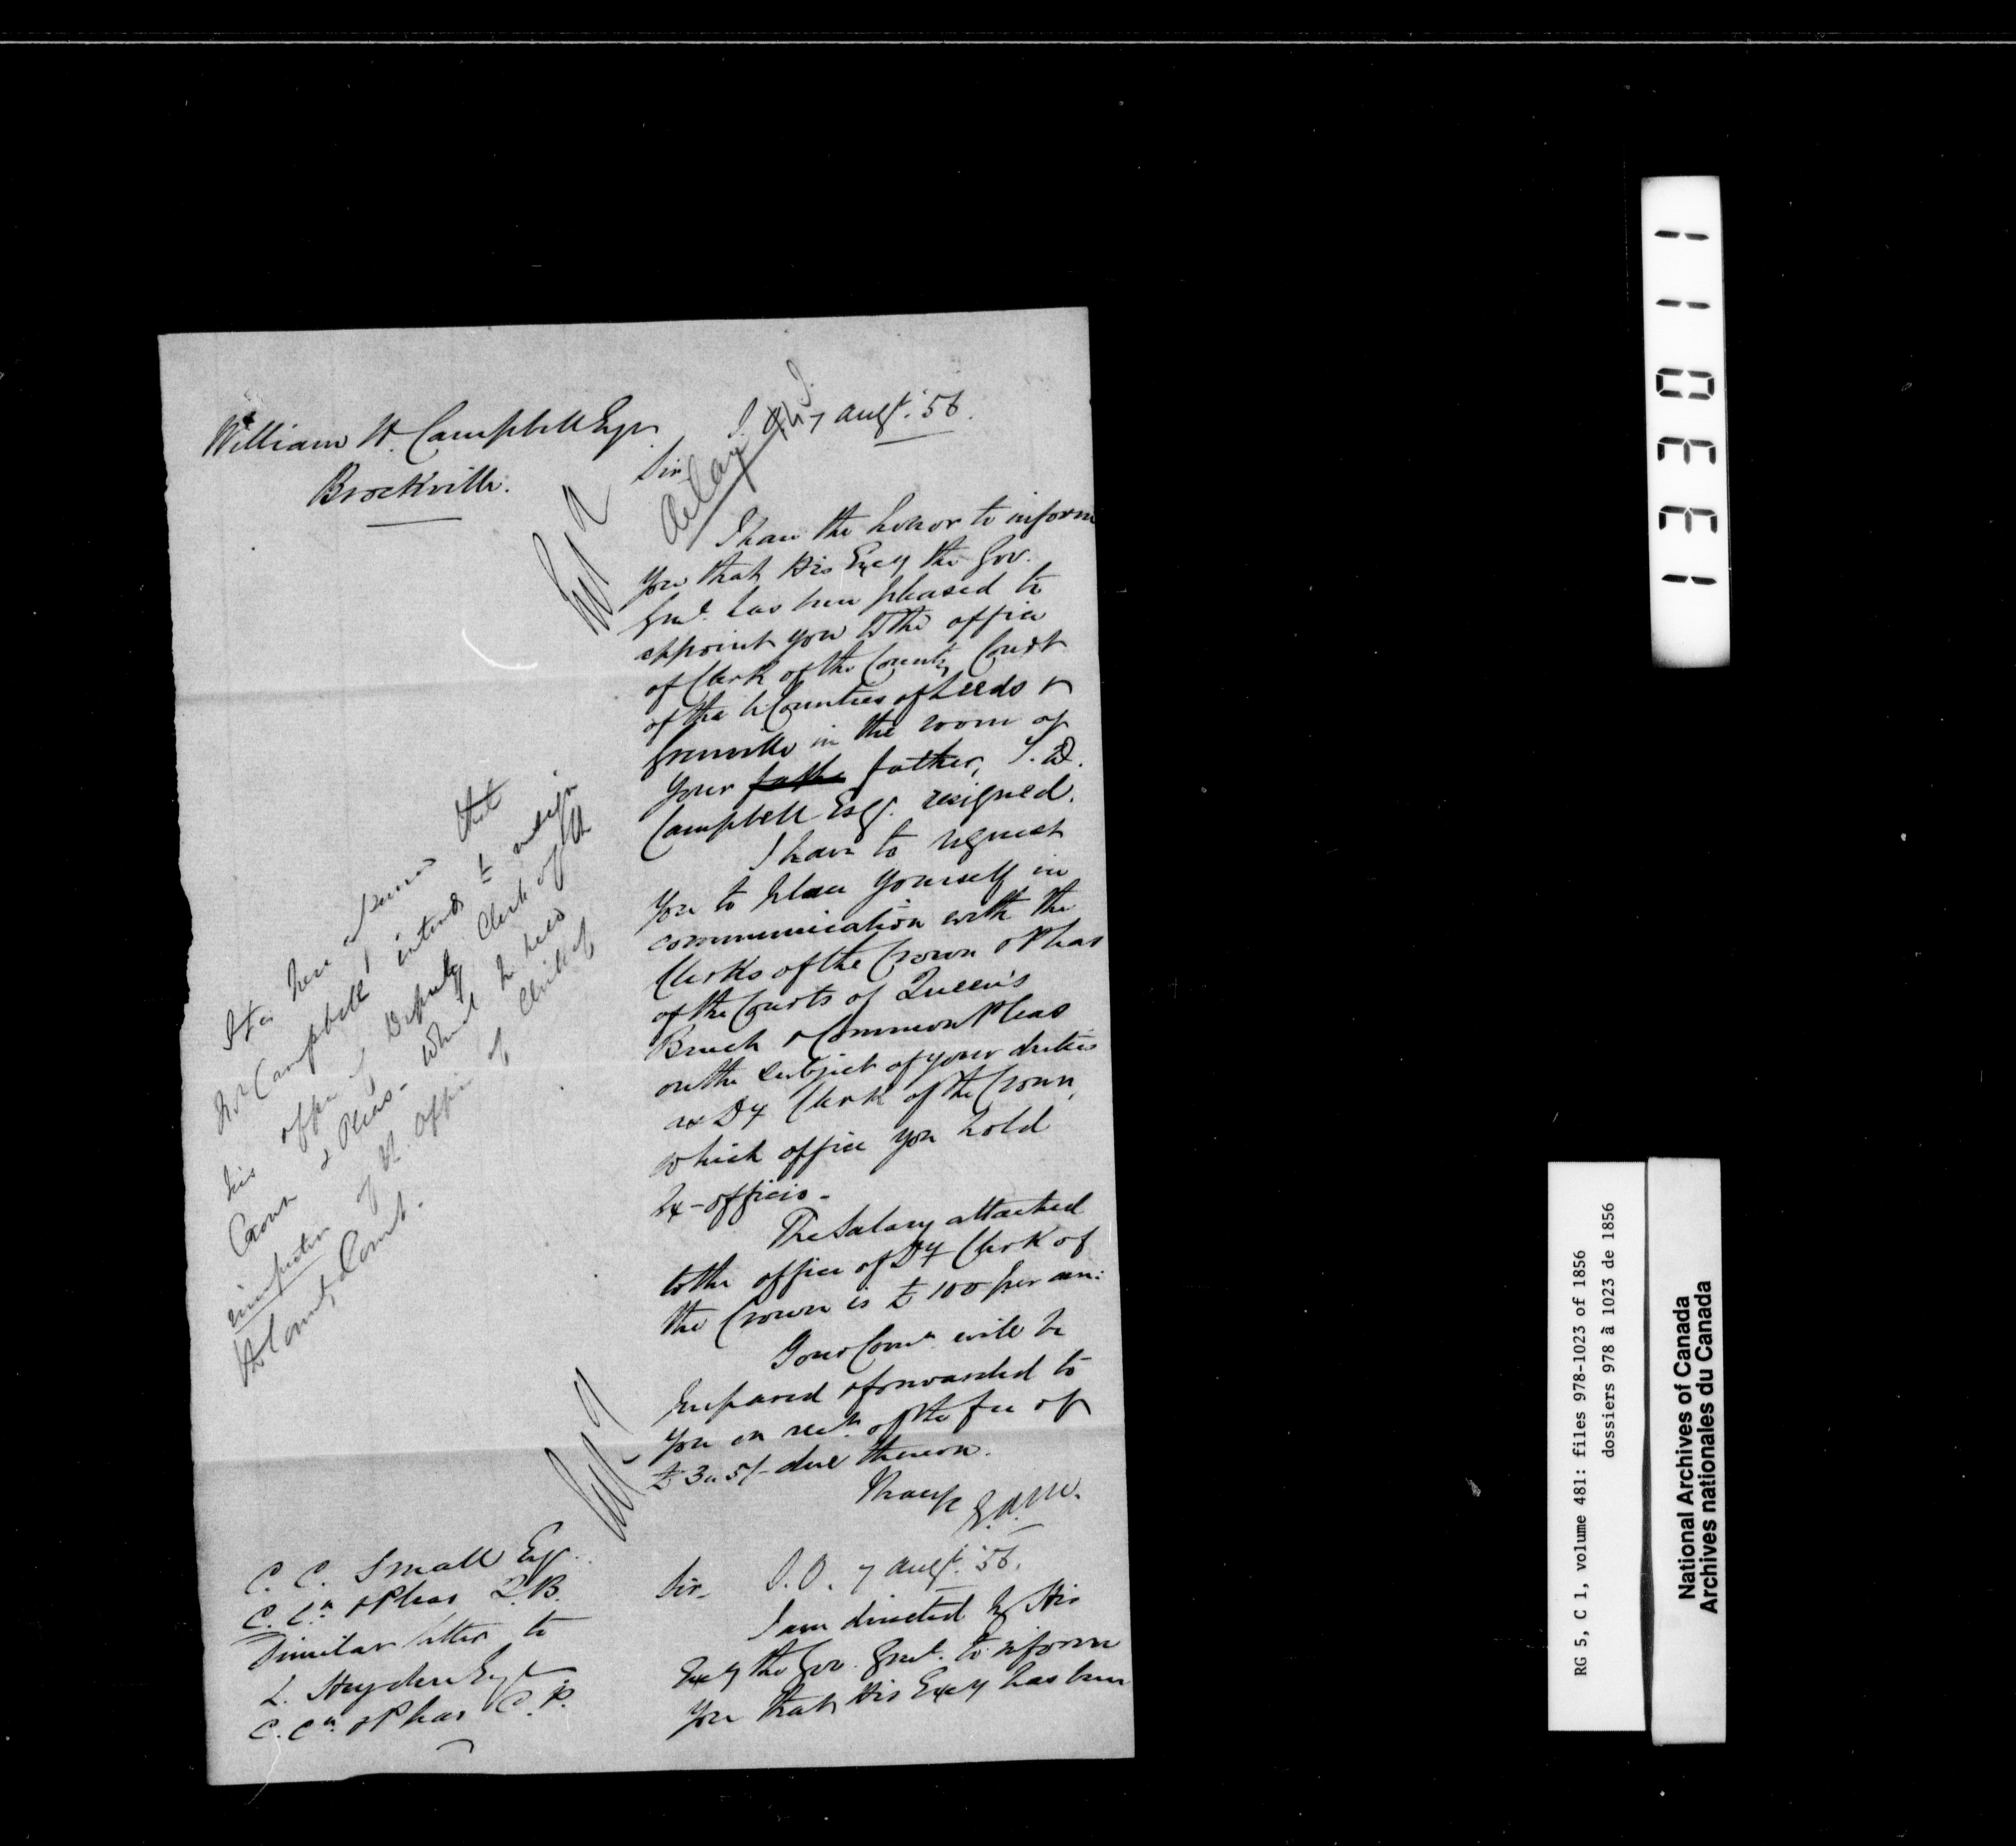 William H. Campbell Esqr.
Brockville.
7 Augt. '56.
Delay
Sir
I have the honor to inform
you that His Excy the Gov.
Genl. has been pleased to
appoint you to the office
of Clerk of the County Court
of the U Counties of Leeds &
Grenville in the room of
your fathe father, T. D.
Campbell Esqr. resigned.
I have to request
you to place yourself in
communication with the
Clerks of the Crown & Pleas
of the Courts of Queen's
Bench & Common Pleas
on the subject of your duties
as Dy Clerk of the Crown,
which office you hold
Ex-officio -
The Salary attached
to the office of Dy Clerk of
the Crown is £ 100 per ann:
Your Comn. will be
prepared & forwarded to
you on rect. of the fee of
£ 3 " 5/- due thereon.
I have &c
E.A.M.
It is here that
Mr Campbell intends to resign
his office of Deputy Clerk of the
Crown & Pleas - which he held
of the office of Clerk of
the County Court.
C. C. Small Esqr.
C. Cn. & Pleas Q.B.
Similar letter to
L. Heyden Esqr
C. Cn. & Pleas C.P.
Sir - S.O. 7 Augt. '56.
I am directed by His
Excy the Gov. Genl. to inform
you that His Excy has been
1 1 0 3 3 1
RG 5, C 1, volume 481: files 978-1023 of 1856
dossiers 978 à 1023 de 1856
National Archives of Canada
Archives nationales du Canada